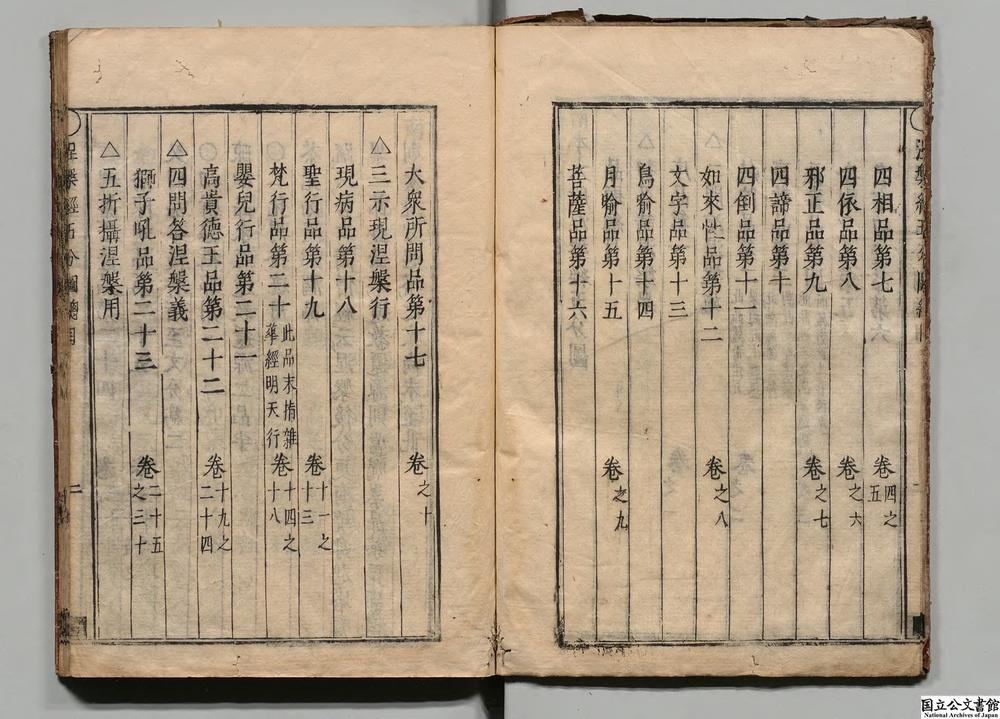 四相品第七 卷四之五
四依品第八 卷之六
邪正品第九 卷之七
四諦品第十
四倒品第十一
如來性品第十二 卷之八
文字品第十三
鳥喻品第十四
月喻品第十五 卷之九
菩薩品第十六
大衆所問品第十七 卷之十
△三示現涅槃行
現病品第十八
聖行品第十九 卷十一之十三
梵行品第二十 此品末指雜華經明天行 卷十四之十八
嬰兒行品第二十一
高貴德王品第二十二 卷十九之二十四
△四問答涅槃義
獅子吼品第二十三 卷二十五之三十
△五折攝涅槃用
涅槃經五分圖總目 二
国立公文書館
National Archives of Japan